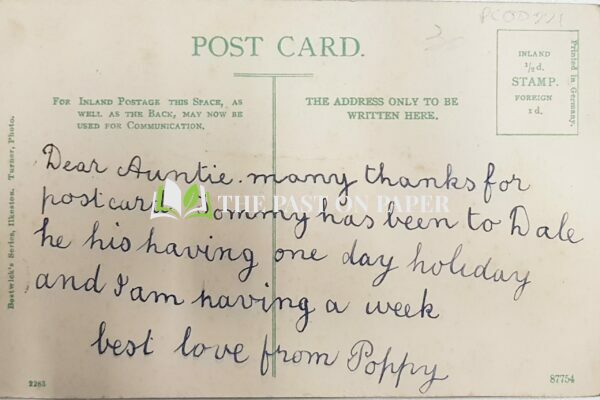 PCOD221
POST CARD.
FOR INLAND POSTAGE THIS SPACE, AS
WELL AS THE BACK, MAY NOW BE
USED FOR COMMUNICATION.
THE ADDRESS ONLY TO BE
WRITTEN HERE.
INLAND
½d.
STAMP.
FOREIGN
1d.
Printed in Germany.
Bostwick's Series, Ilkeston. Turner, Photo.
Dear Auntie. many thanks for
postcard Tommy has been to Dale
he his having one day holiday
and I am having a week
best love from Poppy
THE PAST ON PAPER
2285
87754